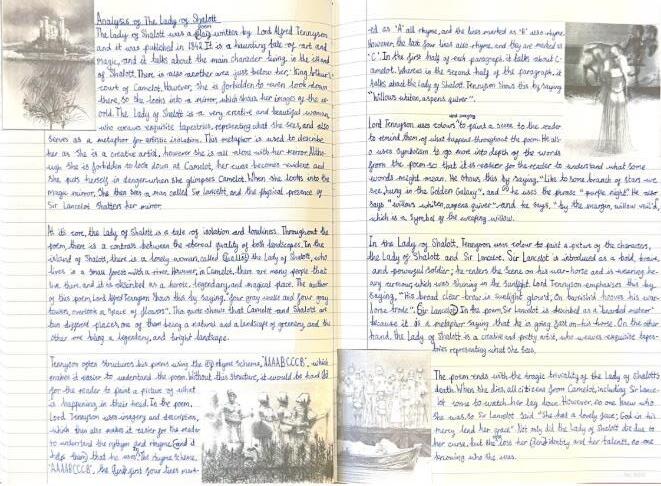 Analysis of The Lady of Shalott
The Lady of Shalott was a poem written by Lord Alfred Tennyson
and it was published in 1842. It is a haunting tale of art and
magic, and it talks about the main character living in the island
of Shalott. There is also another area just below her, King Arthur's
court of Camelot. However, she is forbidden to even look down
there, so she looks into a mirror, which shows her images of the w-
orld. The Lady of Shalott is a very creative and beautiful woman,
who weaves exquisite tapestries, representing what she sees, and also
serves as a metaphor for artistic isolation. This metaphor is used to describe
her as she is a creative artist, however she is all alone with her mirror. Altho-
ugh she is forbidden to look down at Camelot, her curse becomes evident and
she puts herself in danger when she glimpses Camelot. When she looks into the
magic mirror, she then sees a man called Sir Lancelot, and the physical presence of
Sir Lancelot shatters her mirror.
At its core, the lady of Shalott is a tale of isolation and loneliness. Throughout the
poem, there is a contrast between the ethereal quality of both landscapes. In the
island of Shalott, there is a lonely woman, called the Lady of Shalott, who
lives in a small forest with a river. However, in Camelot, there are many people that
live there, and it is described as a heroic, legendary, and magical place. The author
of this poem, Lord Alfred Tennyson shows this by saying, "Four gray walls and four gray
towers, overlook a space of flowers". This quote shows that Camelot and Shalott are
two different places, one of them being a natural and a landscape of greenery, and the
other one being a legendary, and bright landscape.
Tennyson often structures his poems using the rhyme scheme, "AAAABCCCB", which
makes it easier to understand the poem. Without this structure, it would be hard
for the reader to paint a picture of what
is happening in their head. In the poem,
Lord Tennyson uses imagery and description,
which then also makes it easier for the reader
to understand the rhythm and rhyme, and it
helps them that he uses. The rhyme scheme,
"AAAABCCCB", the first four lines mark-
ed as 'A' all rhyme, and the lines marked as 'B' also rhyme.
However, the last four lines also rhyme, and they are marked as
'C'. In the first half of each paragraph, it talks about C-
amelot. Whereas in the second half of the paragraph, it
talks about the lady of Shalott. Tennyson shows this by saying
"Willows whiten, aspens quiver".
Lord Tennyson uses colours to paint a scene to the reader
to remind them of what happens throughout the poem. He als-
o uses symbolism to go more into depth of the words
from the poem so that it is easier for the reader to understand what some
words might mean. He shows this by saying, "Like to some branch of stars we
see, hung in the Golden Galaxy", and he uses the phrase "purple night". He also
says "willows whiten, aspens quiver" and he says, "by the margin, willow veil'd",
which is a symbol of the weeping willow.
In the Lady of Shalott, Tennyson uses colour to paint a picture of the characters,
the Lady of Shalott and Sir Lancelot. Sir Lancelot is introduced as a bold, brave,
and powerful soldier; he enters the scene on his war-horse and is wearing he-
avy armour which was shining in the sunlight. Lord Tennyson emphasises this by
saying, "His broad clear brow in sunlight glow'd; On burnish'd hooves his war-
horse trode". Sir Lancelot In the poem, Sir Lancelot is described as a "bearded meteor"
because it is a metaphor saying that he is going fast on his horse. On the other
hand, the Lady of Shalott is a creative and pretty artist, who weaves exquisite tapest-
ries representing what she sees.
The poem ends with the tragic triviality of the Lady of Shalott's
death. When she dies, all citizens from Camelot, including Sir Lance-
lot come to watch her lay down. However, no one knew who
she was, so Sir Lancelot said "She had a lovely face; God in his
mercy lend her grace". Not only did the Lady of Shalott die due to
her curse, but she loss her identity and her talents, no one
knowing who she was.